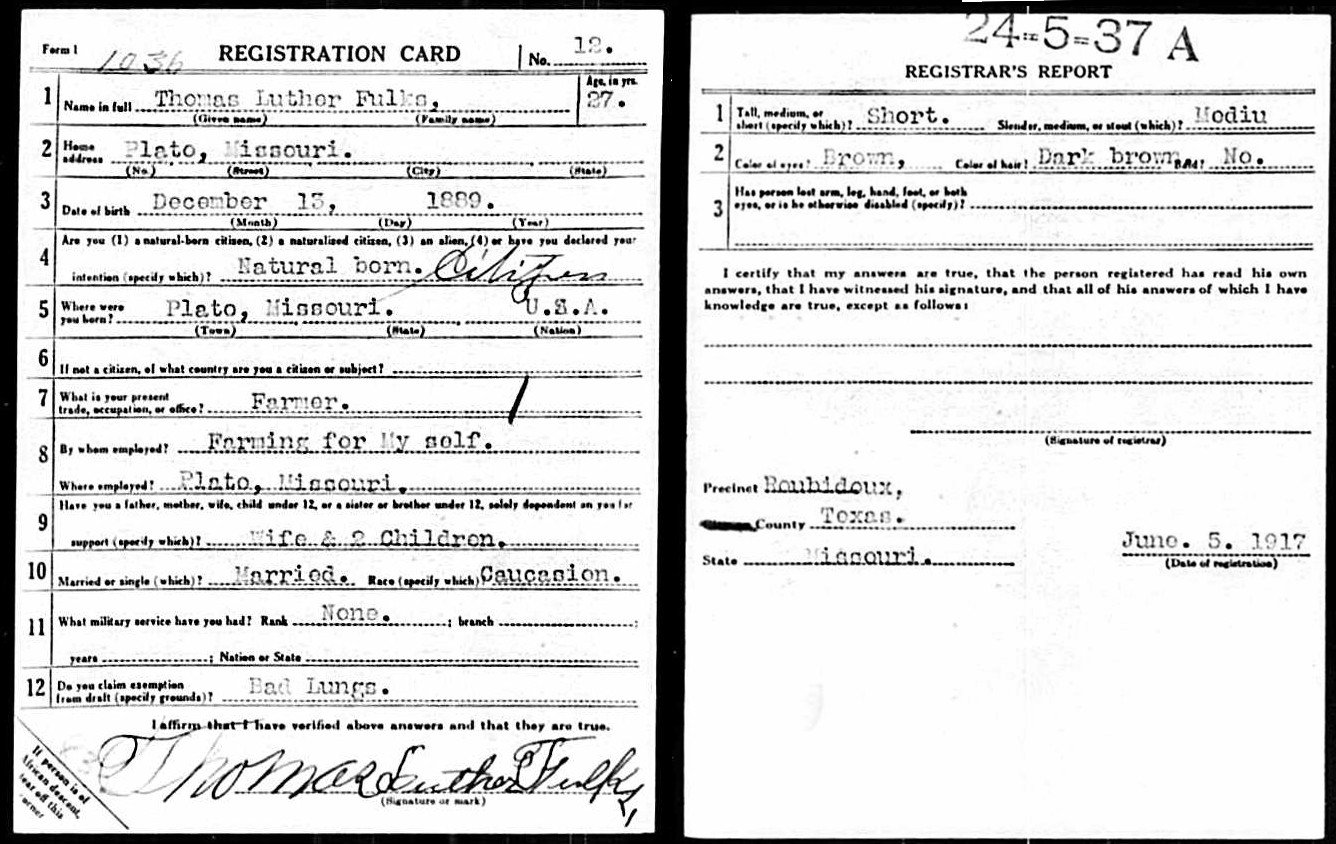 Form 1 1036 REGISTRATION CARD No. 12.
1 Name in full Thomas Luther Fulks, Age, in yrs. 27.
(Given name) (Family name)
2 Home address Plato, Missouri.
(No.) (Street) (City) (State)
3 Date of birth December 13, 1889.
(Month) (Day) (Year)
4 Are you (1) a natural-born citizen, (2) a naturalized citizen, (3) an alien, (4) or have you declared your
intention (specify which)? Natural born. Citizen
5 Where were you born? Plato, Missouri. U.S.A.
(Town) (State) (Nation)
6 If not a citizen, of what country are you a citizen or subject?
7 What is your present trade, occupation, or office? Farmer.
8 By whom employed? Farming for My self.
Where employed? Plato, Missouri.
9 Have you a father, mother, wife, child under 12, or a sister or brother under 12, solely dependent on you for
support (specify which)? Wife & 2 Children.
10 Married or single (which)? Married. Race (specify which) Caucasion.
11 What military service have you had? Rank None. ; branch ;
years ; Nation or State
12 Do you claim exemption from draft (specify grounds)? Bad Lungs.
I affirm that I have verified above answers and that they are true.
Thomas Luther Fulks,
(Signature or mark)
If person is of
African descent,
tear off this
corner
24=5=37 A
REGISTRAR'S REPORT
1 Tall, medium, or short (specify which)? Short. Slender, medium, or stout (which)? Mediu
2 Color of eyes? Brown, Color of hair? Dark brown Bald? No.
3 Has person lost arm, leg, hand, foot, or both
eyes, or is he otherwise disabled (specify)?
I certify that my answers are true, that the person registered has read his own
answers, that I have witnessed his signature, and that all of his answers of which I have
knowledge are true, except as follows:
(Signature of registrar)
Precinct Roubidoux,
County Texas.
State Missouri.
June. 5. 1917
(Date of registration)